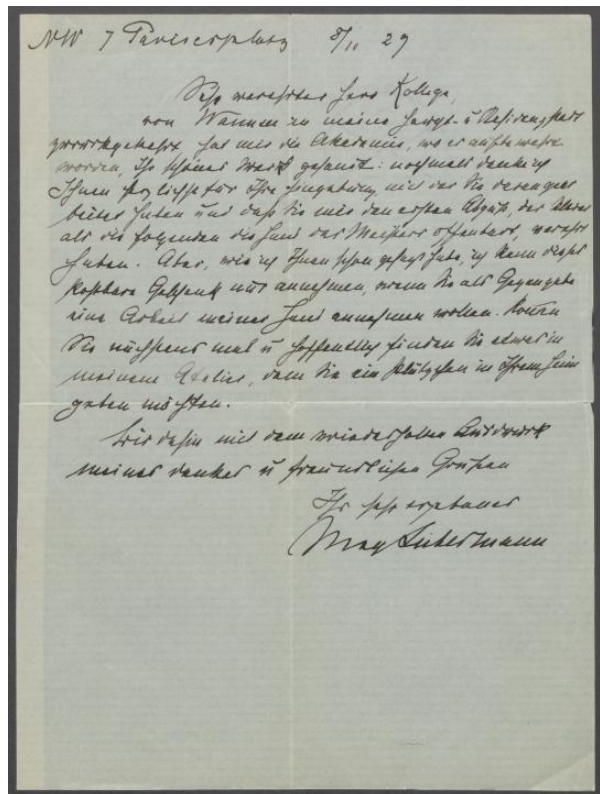 NW 7 Pariserplatz 8/11 29
Sehr verehrter Herr Kollege,
von Wannsee in meine Haupt- u Residenzstadt
zurückgekehrt hat mir die Akademie, wo er aufbewahrt
worden, Ihr schönes Werk gesandt: nochmals danke ich
Ihnen herzlichst für Ihre Hingebung, mit der Sie daran gear
beitet haben und daß Sie mir den ersten Abguß, der klarer
als die folgenden die Hand des Meisters offenbart, verehrt
haben. Aber, wie ich Ihnen schon gesagt habe, ich kann dieses
kostbare Geschenk nur annehmen, wenn Sie als Gegengabe
eine Arbeit meiner Hand annehmen wollen. Kommen
Sie nächstens mal u hoffentlich finden Sie etwas in
meinem Atelier, dem Sie ein Plätzchen in Ihrem Heim
geben möchten.
Bis dahin mit dem wiederholten Ausdruck
meines Dankes u freundlichen Grüßen
Ihr sehr ergebener
Max Liebermann